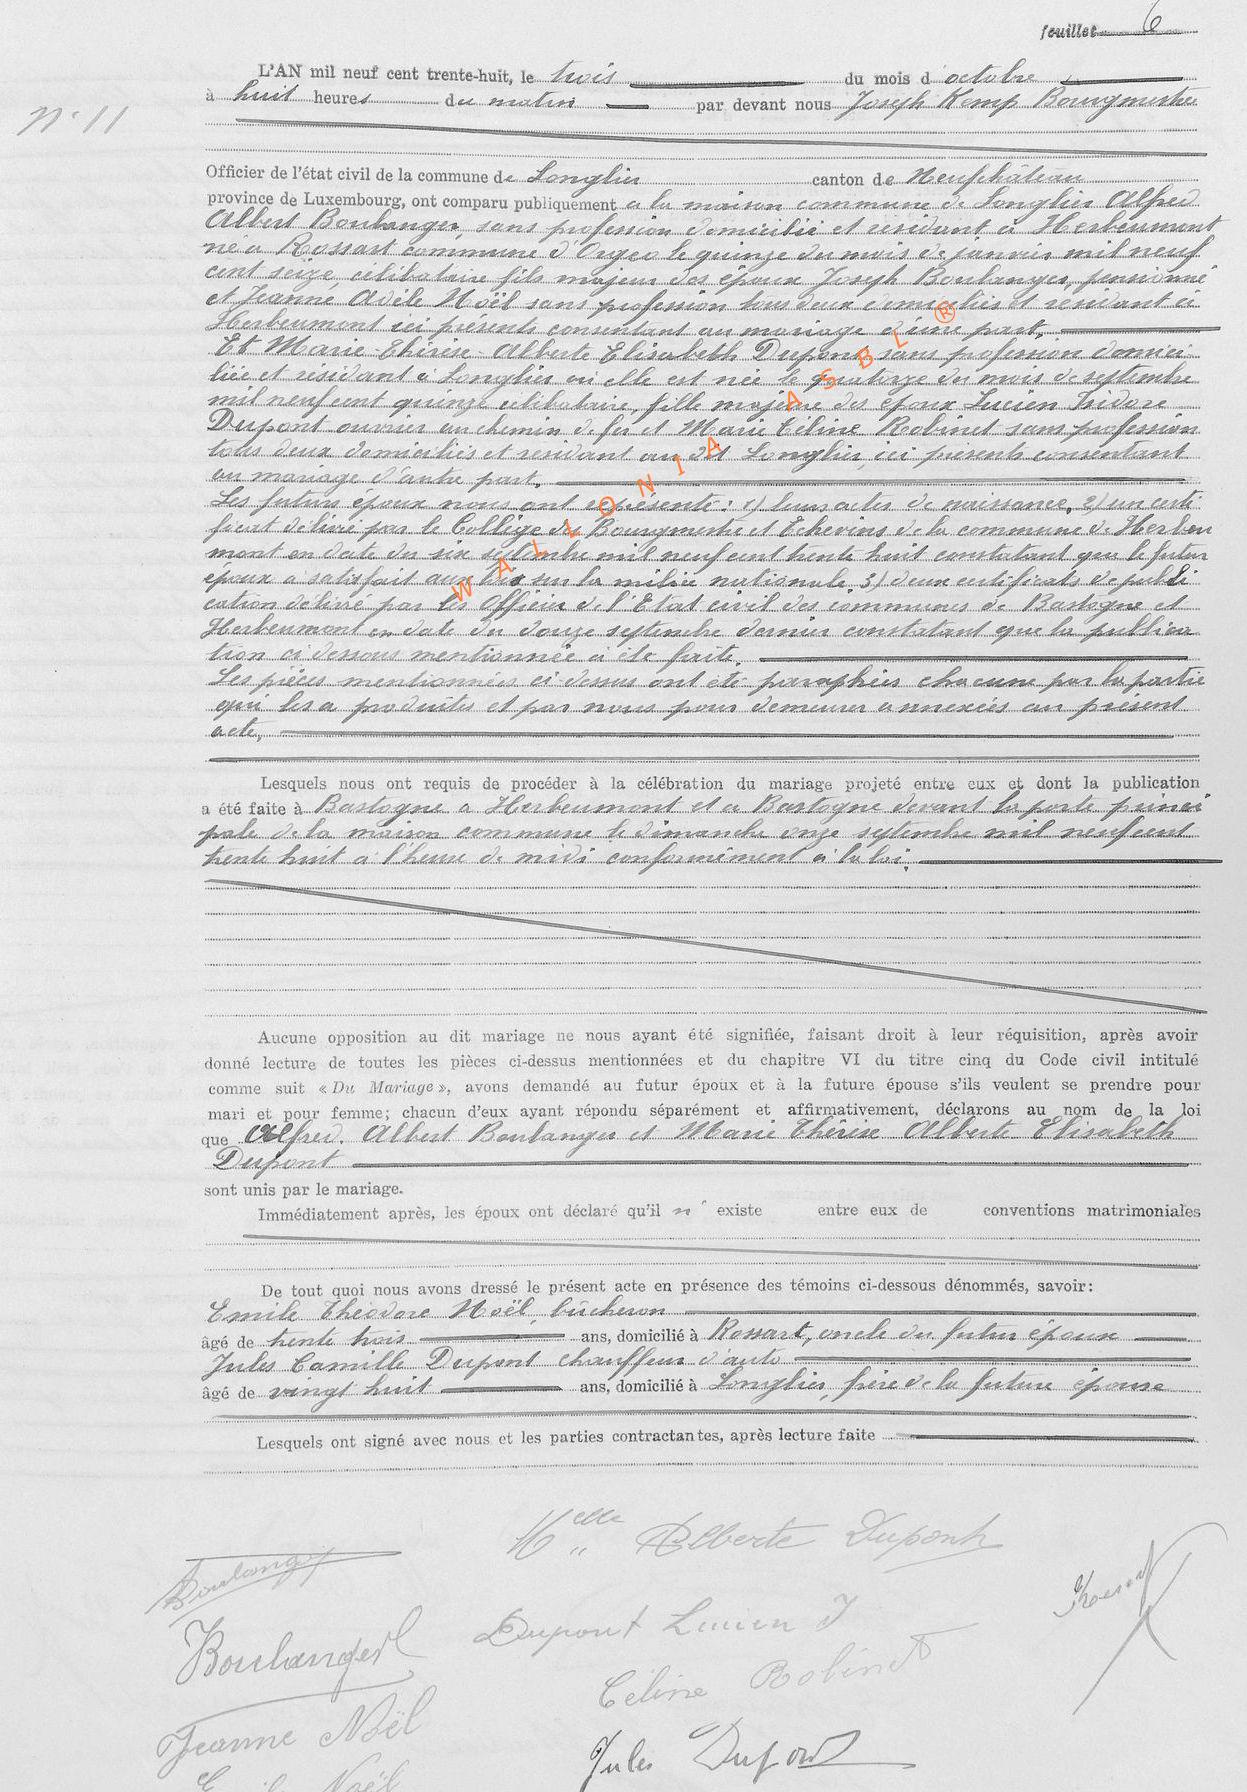 feuillet 6
L'AN mil neuf cent trente-huit, le trois du mois d'octobre
à huit heures du matin par devant nous Joseph Kemp Bourgmestre
N° 11
Officier de l'état civil de la commune de Longlier canton de Neufchâteau
province de Luxembourg, ont comparu publiquement a la maison commune de Longlier Alfred
Albert Boulanger, sans profession domicilié et résidant à Herbeumont
né a Rossart commune d'Orgeo le quinze du mois de janvier mil neuf
cent seize, célibataire fils majeur des époux Joseph Boulanger, pensionné
et Jeanne Adèle Noël sans profession tous deux domiciliés et résidant à
Herbeumont ici présents consentant au mariage d'une part.
Et Marie-Thérèse-Alberte Elisabeth Dupont sans profession domici
liée et résidant à Longlier où elle est née le quatorze du mois de septembre
mil neuf cent quinze célibataire, fille majeure des époux Lucien Isidore
Dupont ouvrier au chemin de fer et Marie Céline Robinet sans profession
tous deux domiciliés et résidant au dit Longlier, ici présents consentant
au mariage d'autre part.
Les futurs époux nous ont représenté: 1) leurs actes de naissance, 2) un certi
ficat délivré par le Collège des Bourgmestre et Echevins de la commune de Herbeu
mont en date du six septembre mil neuf cent trente huit constatant que le futur
époux a satisfait aux lois sur la milice nationale 3) deux certificats de publi
cation délivré par les Officier de l'Etat civil des communes de Bastogne et
Herbeumont en date du douze septembre dernier constatant que la publica
tion ci dessous mentionnée a été faite.
Les pièces mentionnées ci-dessus ont été paraphées chacune par la partie
qui les a produites et par nous pour demeurer annexées au présent
acte,
Lesquels nous ont requis de procéder à la célébration du mariage projeté entre eux et dont la publication
a été faite à Bastogne a Herbeumont et a Bastogne devant la porte princi
pale de la maison commune le dimanche onze septembre mil neuf cent
trente huit à l'heure de midi conformément à la loi.
Aucune opposition au dit mariage ne nous ayant été signifiée, faisant droit à leur réquisition, après avoir
donné lecture de toutes les pièces ci-dessus mentionnées et du chapitre VI du titre cinq du Code civil intitulé
comme suit « Du Mariage », avons demandé au futur époux et à la future épouse s'ils veulent se prendre pour
mari et pour femme; chacun d'eux ayant répondu séparément et affirmativement, déclarons au nom de la loi
que Alfred. Albert Boulanger et Marie Thérèse Alberte Elisabeth
Dupont
sont unis par le mariage.
Immédiatement après, les époux ont déclaré qu'il n' existe entre eux de conventions matrimoniales
De tout quoi nous avons dressé le présent acte en présence des témoins ci-dessous dénommés, savoir:
Emile Théodore Noël, bûcheron
âgé de trente trois ans, domicilié à Rossart, oncle du futur époux
Jules Camille Dupont chauffeur d'auto
âgé de vingt huit ans, domicilié à Longlier, frère de la future épouse
Lesquels ont signé avec nous et les parties contractantes, après lecture faite
Melle Alberte Dupont
Boulanger
Dupont Lucien I
Boulanger
Céline Robinet
Jeanne Noël
Jules Dupont
Noël
WALLONIA ASBL ®